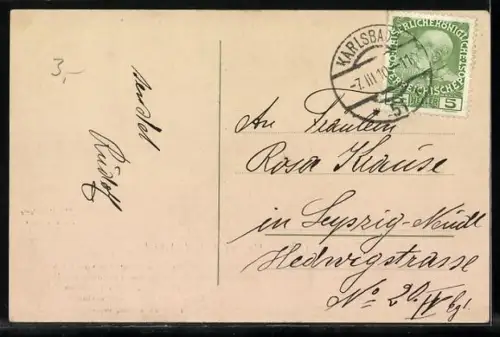 3,-
sendet
Rudolf
KARLSBAD
-7.III.10
KAISERLICHE KÖNIGLICHE
ÖSTERREICHISCHE
HELLER 5
An Fräulein
Rosa Krause
in Leipzig-Neudl
Hedwigstrasse
No 20 IV